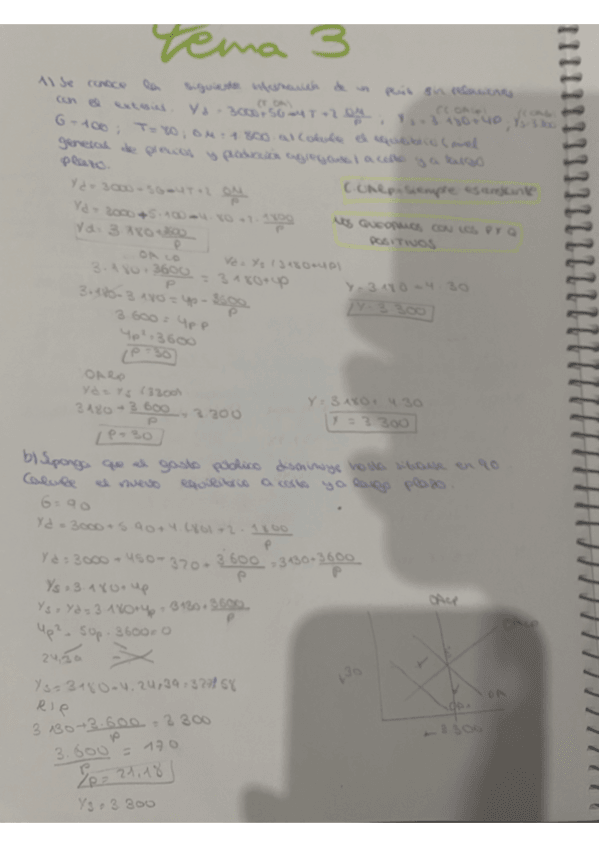 tema 3
1) Se conoce la siguiente información de un país sin relaciones
con el exterior. Yd = 3000+5G-4T+2 OM/P, Ys = 3.180+4P, Ys=3.300
G=100; T=80; OM=1.800. a) Calcule el equilibrio (nivel
general de precios y producción agregada) a corto y a largo
plazo.
Yd = 3000+5G-4T+2 OM/P
Yd = 3000+5·100-4·80+2·1800/P
Yd = 3.180+3600/P
siempre es constante
NOS QUEDAMOS CON LOS P Y Q
POSITIVOS
OACP
Yd = Ys (3180+4P)
3.180+3600/P = 3180+4P
3.180-3180=4P-3600/P
3600 = 4P·P
4P²=3600
P=30
Y=3180+4·30
Y=3300
OALP
Yd = Ys (3300)
3180+3.600/P = 3.300
P=30
Y=3180+4·30
Y=3.300
b) Suponga que el gasto público disminuye hasta situarse en 90.
Calcule el nuevo equilibrio a corto y a largo plazo.
G=90
Yd = 3000+5·90+4·(80)+2·1800/P
Yd = 3000+450-320+3600/P = 3130+3600/P
Ys=3180+4P
Ys=Yd=3180+4P=3130+3600/P
4P²-50P-3600=0
Ys=3180+4·24,39=3277,68
3130+3.600/P=3300
3.600/P = 170
P=21,18
Ys=3300
OALP
OACP
OA
3300